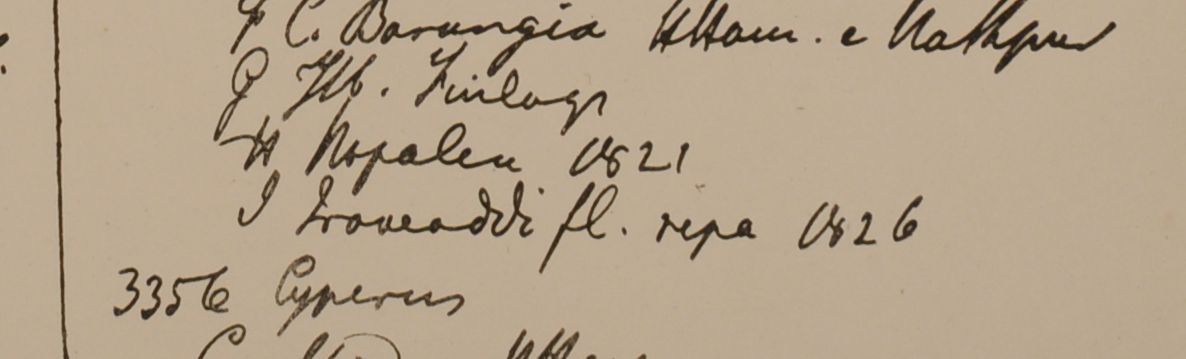 F C. Barungia Httam. e Nathpur
G Hb. Finlays
H Napalea 1821
I Irawaddi fl. ripa 1826
3356 Cyperus